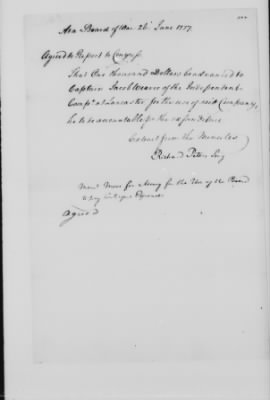 At a Board of War 26 June 1777.
Agreed to Report to Congress
That One thousand Dollars be advanced to
Captain Jacob Weaver of the Independent
Compy at Lancaster for the use of said Company,
he to be accountable for the expenditure
Extract from the Minutes
Richard Peters Secy
for Money for the Use of the Board
to pay Expences
Agreed